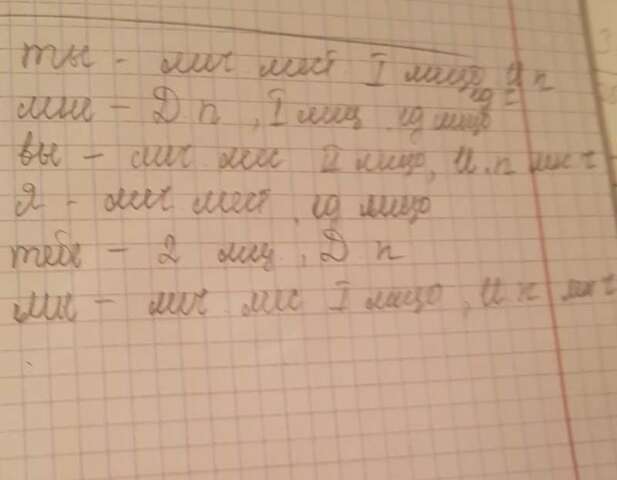 ты - лич мест I лицо, И п
ед ч
мне - Д п, I лиц ед лицо
вы - лич мес II лицо, И. п мн ч
я - лич мест, ед лицо
тебе - 2 лиц, Д п
мы - лич мес I лицо, И п мн ч